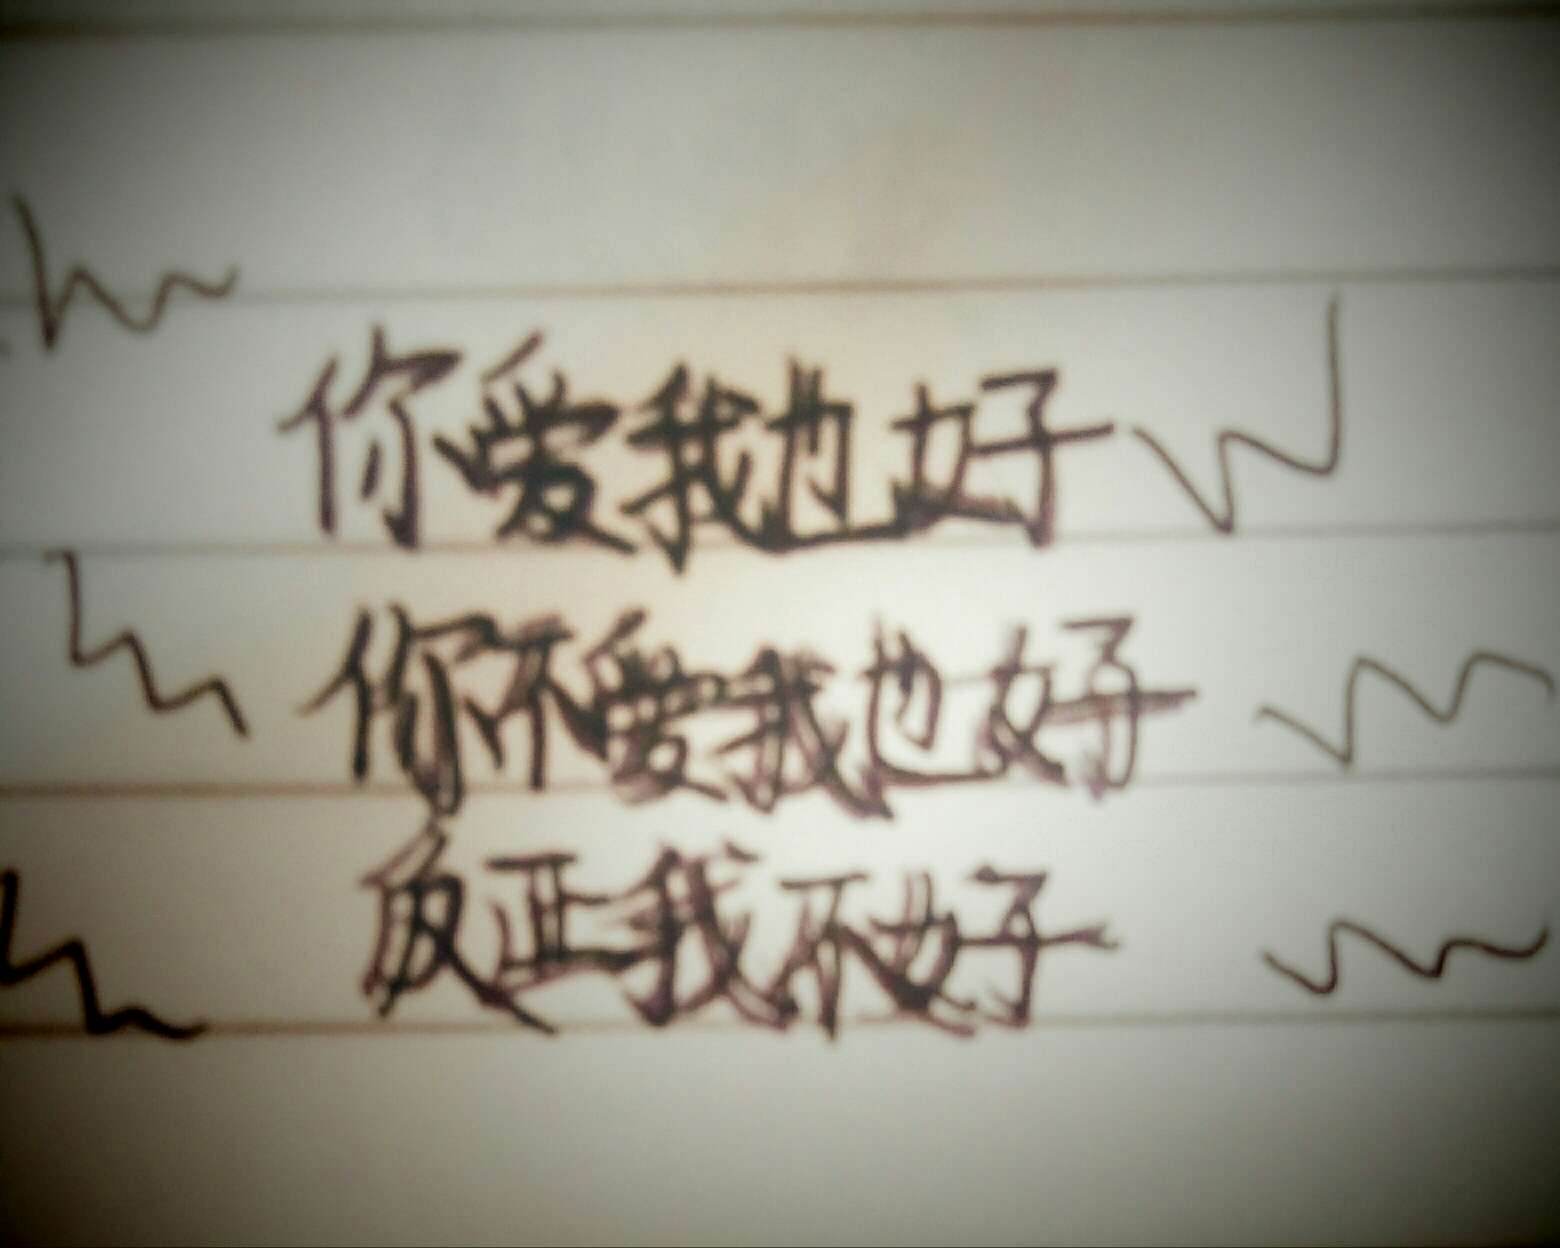 你爱我也好
你不爱我也好
反正我不好